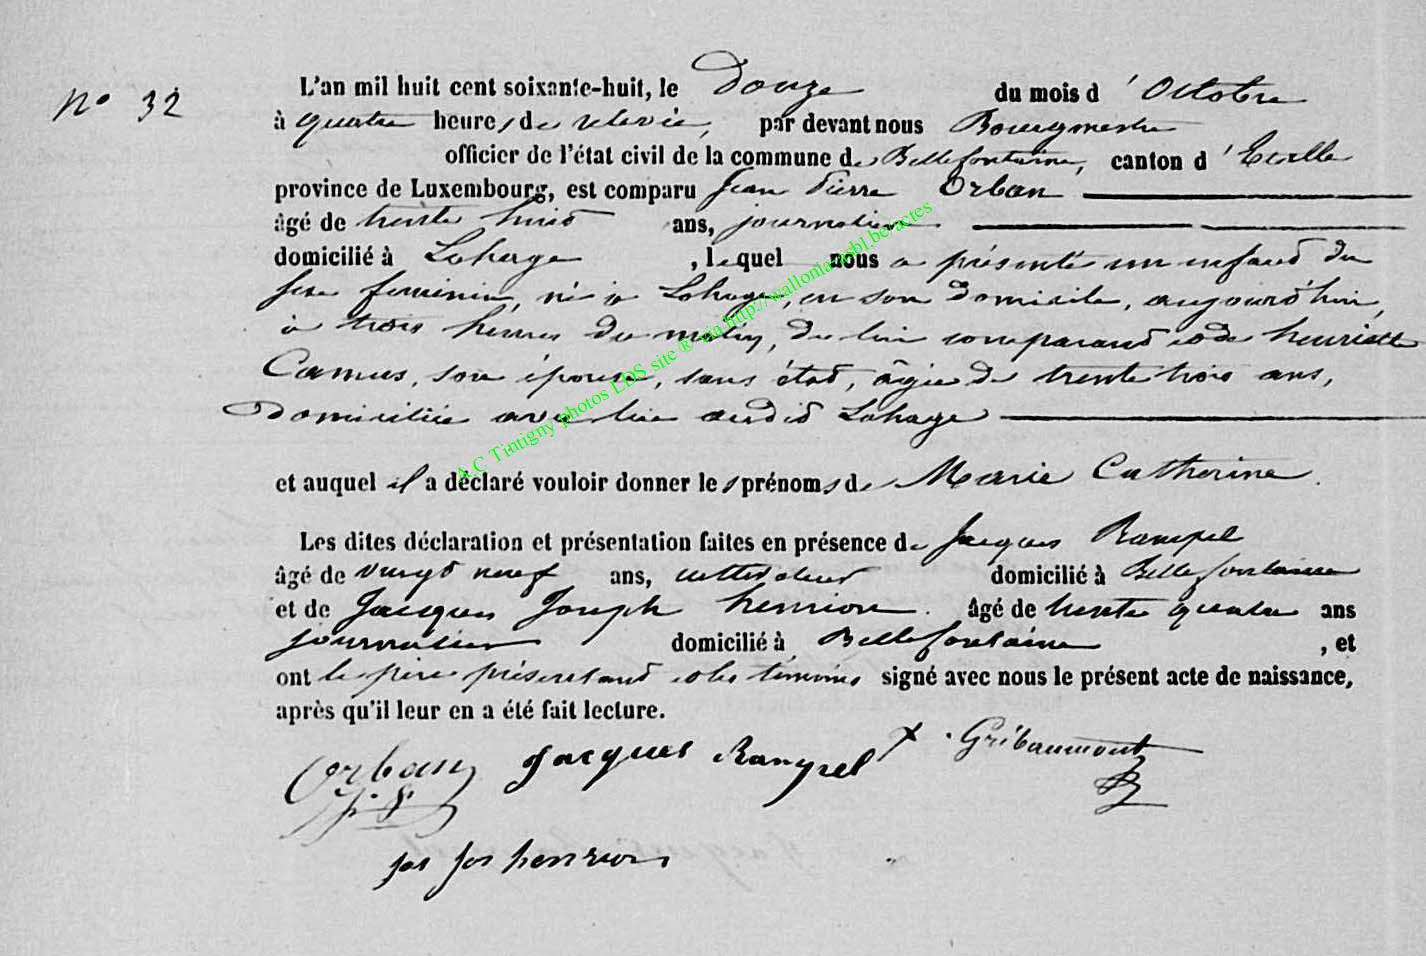 N° 32
L'an mil huit cent soixante-huit, le Douze du mois d'Octobre
à quatre heures de relevée, par devant nous Bourgmestre
officier de l'état civil de la commune de Bellefontaine, canton d'Etalle
province de Luxembourg, est comparu Jean Pierre Orban
âgé de trente huit ans, journalier
domicilié à Lahage, lequel nous a présenté un enfant du
sexe féminin, né à Lahage, en son domicile, aujourd'hui,
à trois heures du matin, de lui comparant et de henriette
Camus, son épouse, sans état, âgée de trente trois ans,
domiciliée avec lui audit Lahage
et auquel il a déclaré vouloir donner les prénoms de Marie Catherine.
Les dites déclaration et présentation faites en présence de Jacques Rampel
âgé de vingt neuf ans, cultivateur domicilié à Bellefontaine
et de Jacques Joseph henrion. âgé de trente quatre ans
journalier domicilié à Bellefontaine, et
ont le père présentant et les témoins signé avec nous le présent acte de naissance,
après qu'il leur en a été fait lecture.
Orban Jacques Rampel Gribaumont
J. P.
jas jos henrion
A.C Tintigny photos LDS site ® via http://wallonia.asbl.be/actes